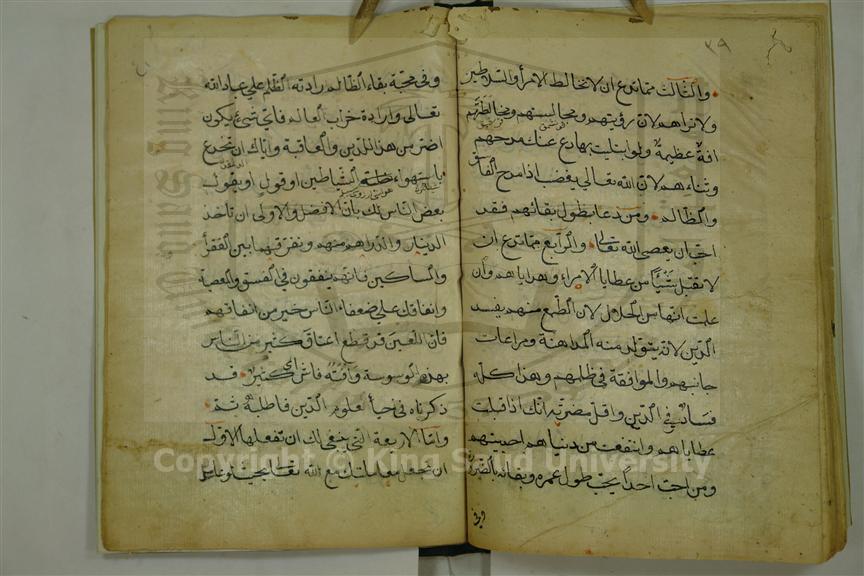 ٣٩
والثالث مما تدع ان لا تخالط الامرأ والسلاطين
ولا تراهم لان رؤيتهم ومجالستهم ومخالطتهم
افة عظيمة ولو ابتليت بها دع عنك مدحهم
وثناءهم لان الله تعالى يغضب اذا مدح الفاسق
والظالم ومن دعا بطول بقائهم فقد
احب ان يعصى الله تعالى والرابع مما تدع ان
لا تقبل شيأ من عطايا الامراء وهداياهم وان
علمت انها من الحلال لان الطمع منهم يفسد
الدين لانه يتولد منه المداهنة ومراعات
جانبهم والموافقة في ظلمهم وهذا كله
فساد في الدين واقل مضرته انك اذا قبلت
عطاياهم وانتفعت من دنياهم احببتهم
ومن احب احدا يحب طول عمره وبقائه بالضرورة
وفي
وفي محبة بقاء الظالم ارادته الظلم على عباد الله
تعالى وارادة خراب العالم فاي شيء يكون
اضر من هذا للدين والعاقبة واياك ان تخدع
باستهواء الشياطين او قول او بقول
بعض الناس لك بان الافضل والاولى ان تأخذ
الدينار والدراهم منهم وتفرقهما بين الفقرأ
والمساكين فانهم ينفقون في الفسق والمعصية
وانفاقك على ضعفاء الناس خير من انفاقهم
فان اللعين قد قطع اعناق كثير من الناس
بهذه الوسوسة وآفته فاش اي كثير قد
ذكرناه في احيأ علوم الدين فاطلبه ثم
واما الاربعة التي ينبغي لك ان تفعلها الاول
ان تجعل معاملتك مع الله تعالى بحيث لو عامل
Copyright © King Saud University